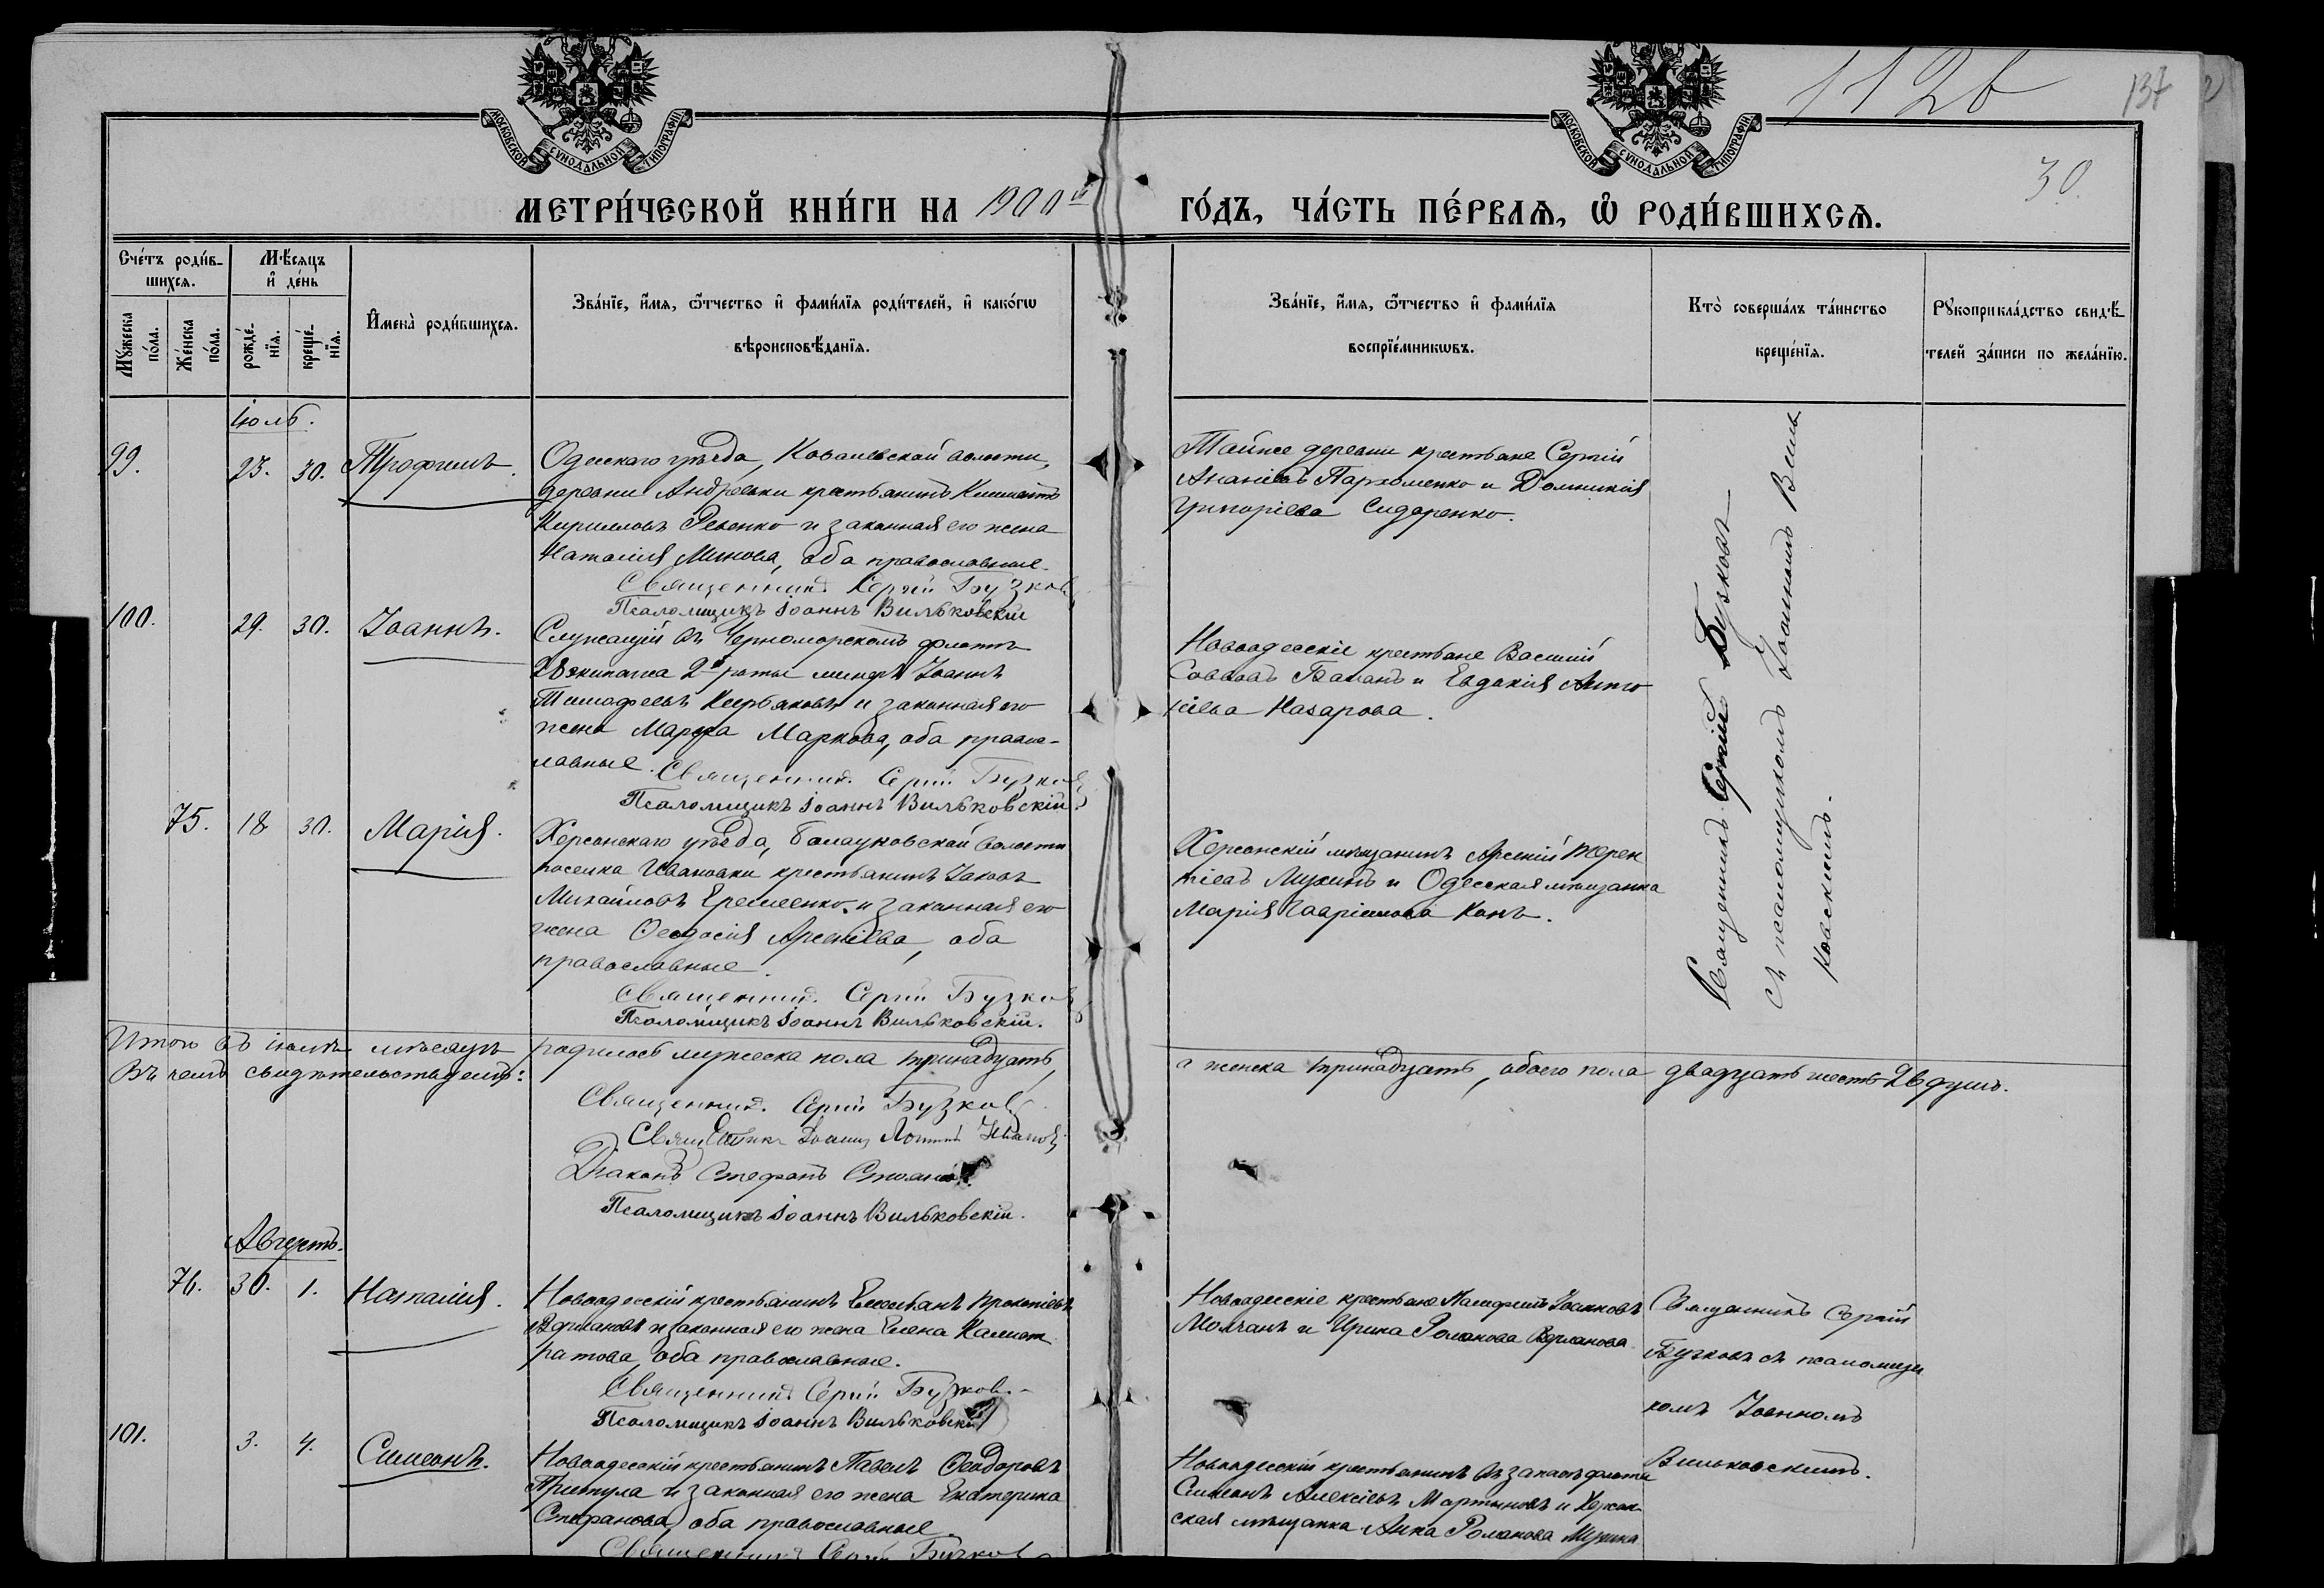 1126
137
30.
МОСКОВСКОЙ СѴНОДАЛЬНОЙ ТИПОГРАФІИ
МОСКОВСКОЙ СѴНОДАЛЬНОЙ ТИПОГРАФІИ
МЕТРИ́ЧЕСКОЙ КНИ́ГИ НА 1900й ГО́ДЪ, ЧА́СТЬ ПЕ́РВАѦ, Ѽ РОДИ́ВШИХСѦ.
Сче́тъ роди́в-
шихсѧ.
Мꙋ́жеска по́ла.
Же́нска по́ла.
Мѣ́сѧцъ и҆ де́нь
рожде́-нїѧ.
креще́-нїѧ.
И҆мена̀ роди́вшихсѧ.
Зва́нїе, и҆́мѧ, ѻ҆́тчество и҆ фами́лїѧ роди́телей, и҆ како́гѡ
вѣроисповѣ́данїѧ.
Зва́нїе, и҆́мѧ, ѻ҆́тчество и҆ фами́лїѧ
воспрїе́мникѡвъ.
Кто̀ соверша́лъ та́инство
креще́нїѧ.
Рꙋкоприкла́дство свидѣ́-
телей за́писи по жела́нїю.
Іюль.
99. 23. 30. Трофимъ.
Одесскаго уѣзда, Ковалевской волости,
деревни Андреевки крестьянинъ Климентъ
Кирилловъ Ревенко и законная его жена
Наталія Минова, оба православные.
Священникъ Сергій Бузковъ
Псаломщикъ Іоаннъ Вильковскій
Тойже деревни крестьяне Сергій
Ананіевъ Пархоменко и Домникія
Григоріева Сидоренко.
100. 29. 30. Іоаннъ.
Служащій въ Черноморскомъ флотѣ
28 экипажа 2й роты Іоаннъ
Тимофеевъ и законная его
жена Марфа Маркова, оба правос-
лавные. Священникъ Сергій Бузковъ
Псаломщикъ Іоаннъ Вильковскій
Новоодесскіе крестьяне Василій
Саввовъ и Евдокія
Назарова.
75. 18 30. Марія.
Херсонскаго уѣзда, Балацковской волости
поселка Ивановки крестьянинъ Іаковъ
Михайловъ Еременко и законная его
жена Ѳеодосія Арсеніева, оба
православные.
Священникъ Сергій Бузковъ
Псаломщикъ Іоаннъ Вильковскій.
Херсонскій мѣщанинъ Арсеній Терен
тіевъ Мухинъ и Одесская мѣщанка
Марія Гавріилова Конъ.
Священникъ Сергій Бузковъ
съ псаломщикомъ Іоанномъ Виль
ковскимъ.
Итого въ іюлѣ мѣсяцѣ родилось мужеска пола тринадцать,
а женска тринадцать, обоего пола двадцать шесть 26 душъ.
Въ чемъ свидѣтельствуемъ:
Священникъ Сергій Бузковъ
Діаконъ Стефанъ
Псаломщикъ Іоаннъ Вильковскій.
Августъ.
76. 30. 1. Наталія.
Новоодесскій крестьянинъ Емельянъ Прокопіевъ
и законная его жена Елена Калист
ратова, оба православные.
Священникъ Сергій Бузковъ
Псаломщикъ Іоаннъ Вильковскій
Новоодесскіе крестьяне Іоанновъ
Молчанъ и Ирина Романова
Священникъ Сергій
Бузковъ съ псаломщи
комъ Іоанномъ
Вильковскимъ.
101. 3. 4. Симеонъ.
Новоодесскій крестьянинъ Павелъ Ѳеодоровъ
Притула и законная его жена Екатерина
Стефанова, оба православные.
Священникъ Сергій Бузковъ
Новоодесскій крестьянинъ въ запасѣ флота
Симеонъ Алексіевъ Мартыновъ и Херсон
ская мѣщанка Анна Романова